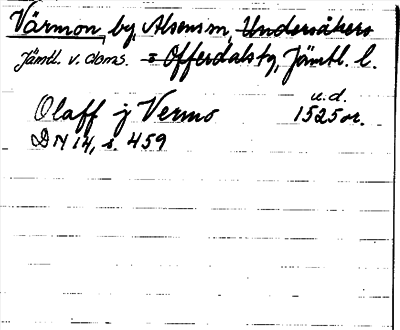 Värmon, by, Alsens sn, Undersåkers
Jämtl. v. doms. = Offerdals tg, Jämtl. l.
Olaff j Vermo u.d. 1525 or.
DN 14, s. 459